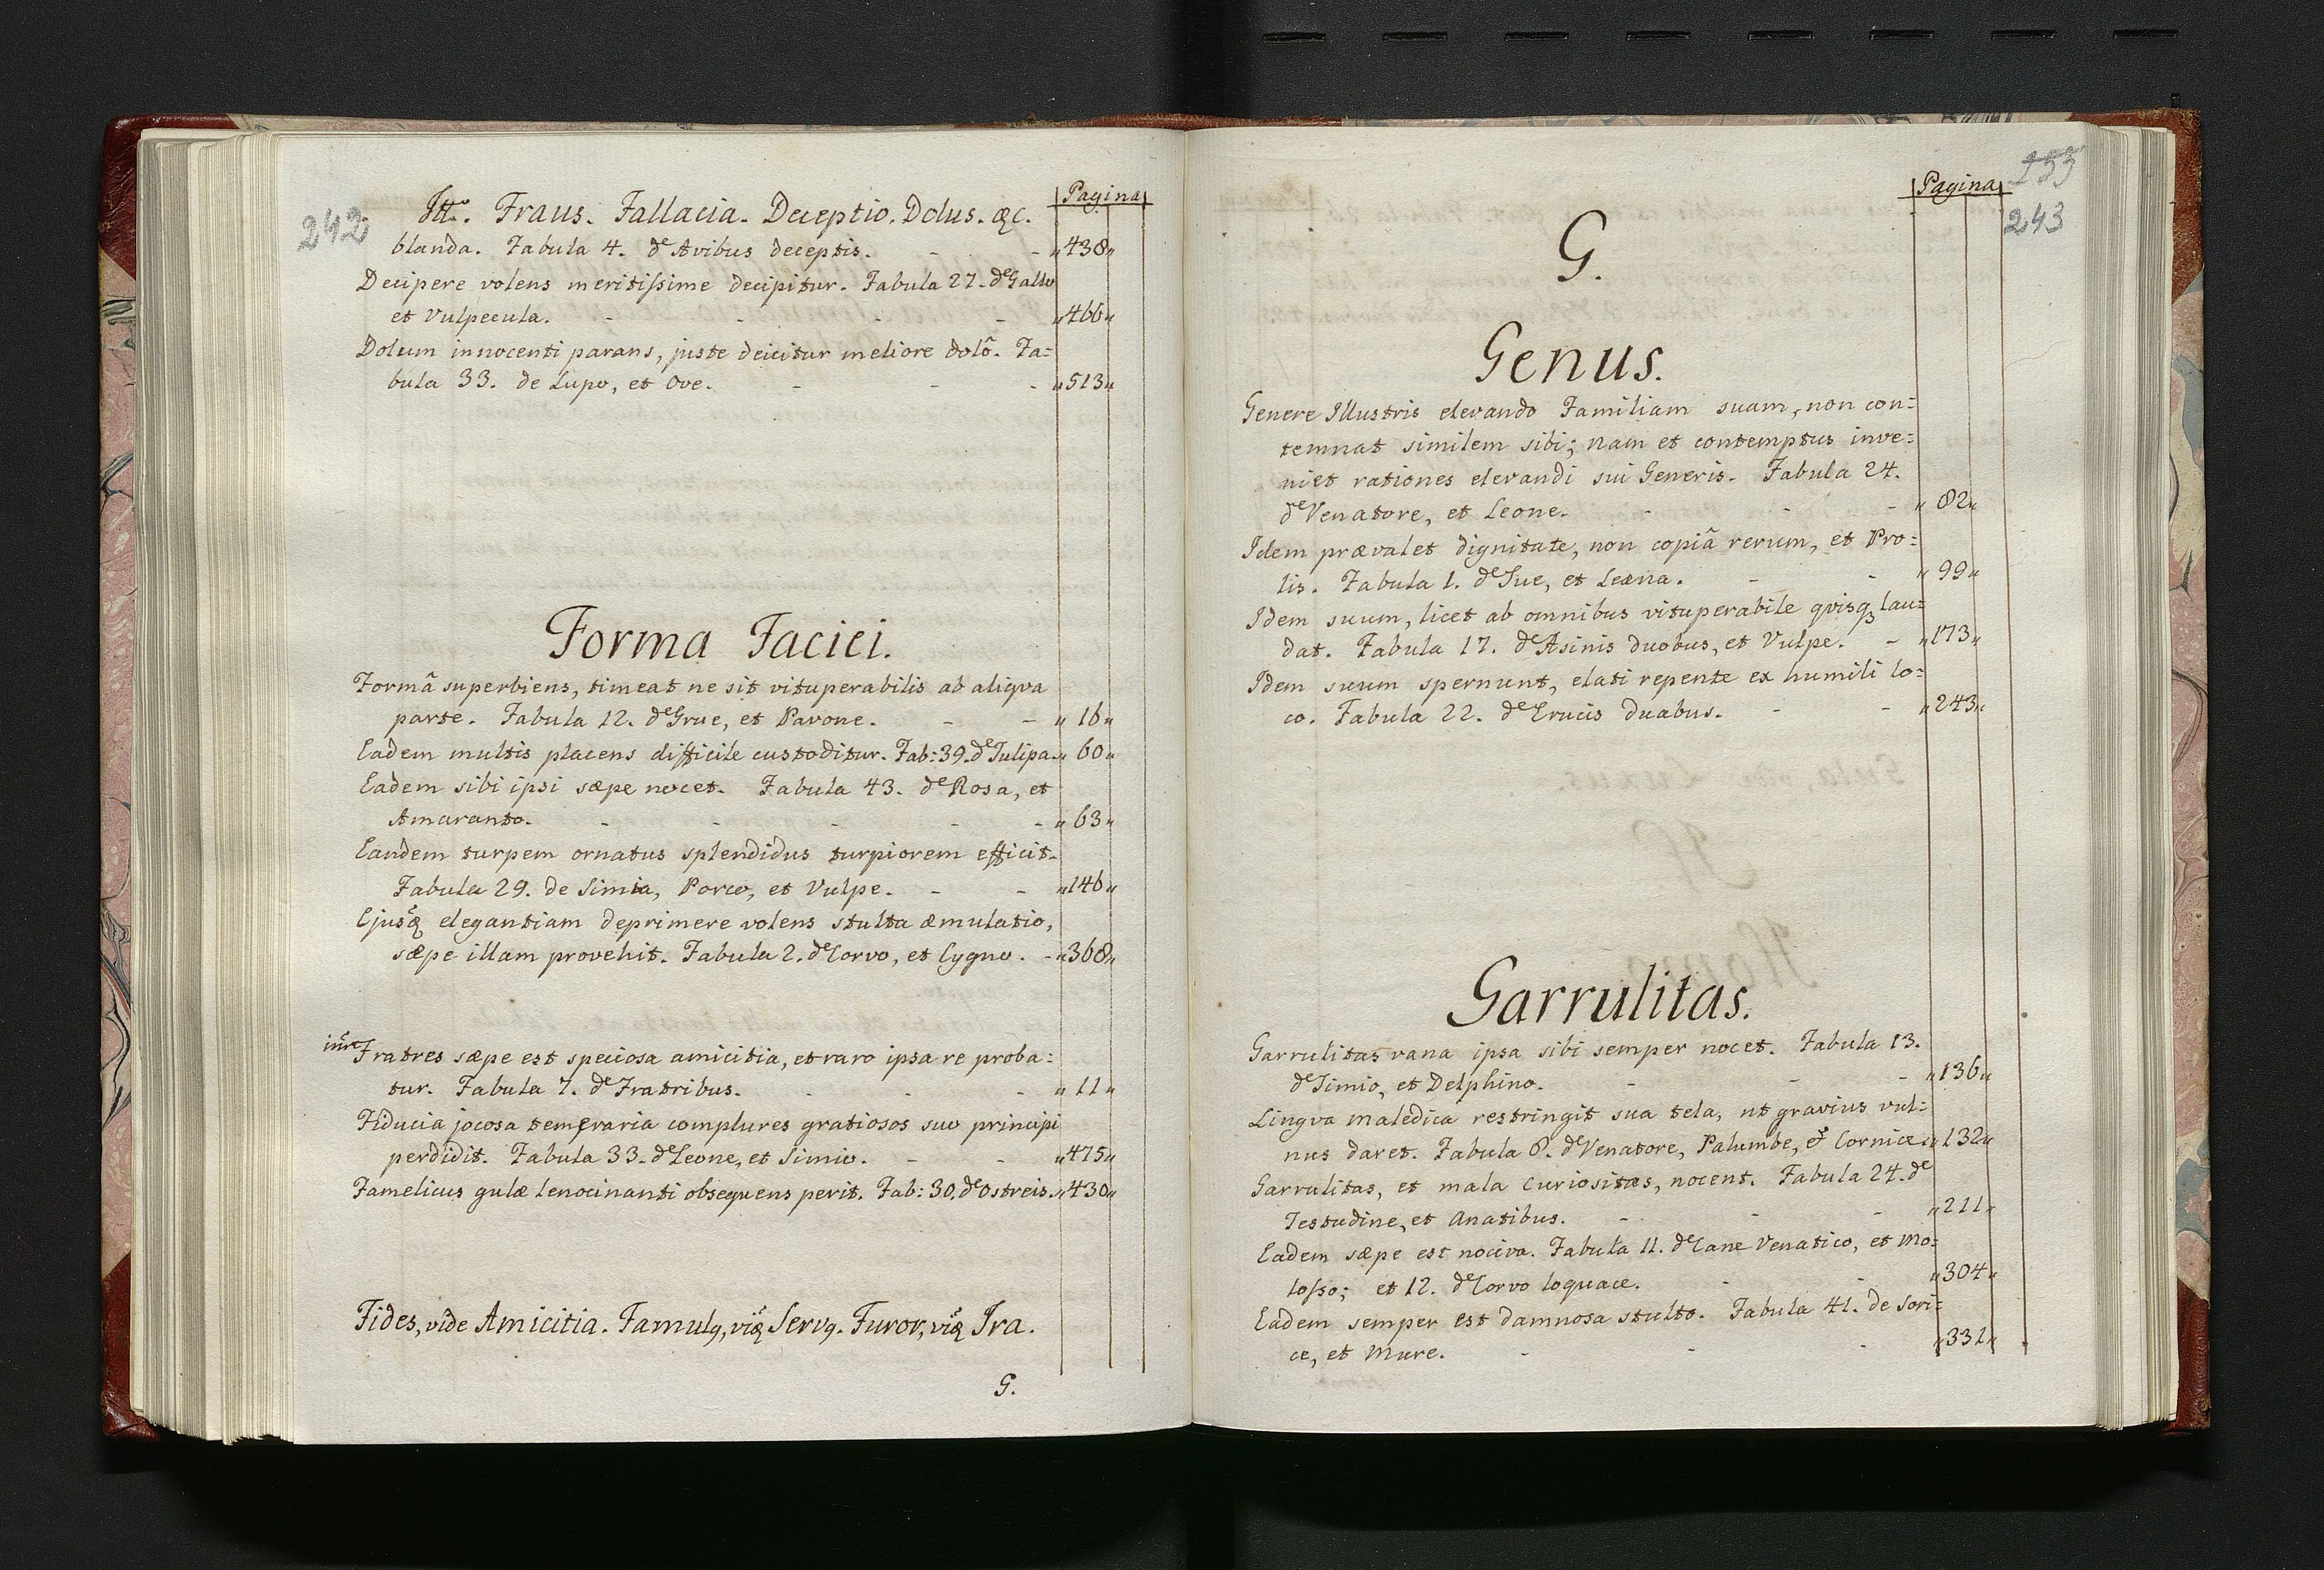 Pagina
242
Itt̃o. Fraus. Fallacia. Deceptio. Dolus. &c.
blanda. Fabula 4. de Avibus deceptis. - - „438„
Decipere volens meritissime decipitur. Fabula 27. de Gallo
et Vulpecula. - - - - „466„
Dolum innocenti parans, juste deicitur meliore dolô. Fa:
bula 33. de Lupo, et Ove. - - - „513„
Forma Faciei.
Formâ superbiens, timeat ne sit vituperabilis ab aliqva
parte. Fabula 12. de Grue, et Pavone. - - „16„
Eadem multis placens difficile custoditur. Fab: 39. de Tulipa. „60„
Eadem sibi ipsi sæpe nocet. Fabula 43. de Rosa, et
Amaranto. - - - - - „63„
Eandem turpem ornatus splendidus turpiorem efficit.
Fabula 29. de Simia, Porco, et Vulpe. - - „146„
Ejusq̃ elegantiam deprimere volens stulta æmulatio,
sæpe illam provehit. Fabula 2. de Corvo, et Cygno. - „368„
inr̃ Fratres sæpe est speciosa amicitia, et raro ipsa re proba:
tur. Fabula 7. de Fratribus. - - - „11„
Fiducia jocosa temeraria complures gratiosos suo principi
perdidit. Fabula 33. de Leone, et Simio. - - „475„
Famelicus gulæ lenocinanti obsequens perit. Fab: 30. de Ostreis. „430„
Fides, vide Amicitia. Famulꝰ, vid̃e Servꝰ. Furor, vid̃e Ira.
G.
Pagina
253
243
G.
Genus.
Genere Illustris elevando Familiam suam, non con:
temnat similem sibi; nam et contemptus inve:
niet rationes elevandi sui Generis. Fabula 24.
de Venatore, et Leone. - - - „82„
Idem prævalet dignitate, non copiâ rerum, et Pro:
lis. Fabula 1. de Sue, et Leæna. - - „99„
Idem suum, licet ab omnibus vituperabile qvisqꝫ lau:
dat. Fabula 17. de Asinis duobus, et Vulpe. - „173„
Idem suum spernunt, elati repente ex humili lo:
co. Fabula 22. de Erucis duabus. - - „243„
Garrulitas.
Garrulitas vana ipsa sibi semper nocet. Fabula 13.
de Simio, et Delphino. - - - „136„
Lingva maledica restringit sua tela, ut gravius vul:
nus daret. Fabula 8. de Venatore, Palumbe, et Cornice. „132„
Garrulitas, et mala curiositas, nocent. Fabula 24. de
Testudine, et Anatibus. - - - „211„
Eadem sæpe est nociva. Fabula 11. de Cane Venatico, et Mo:
losso; et 12. de Corvo loquace. - - „304„
Eadem semper est damnosa stulto. Fabula 41. de Sori:
ce, et Mure. - - - „331„